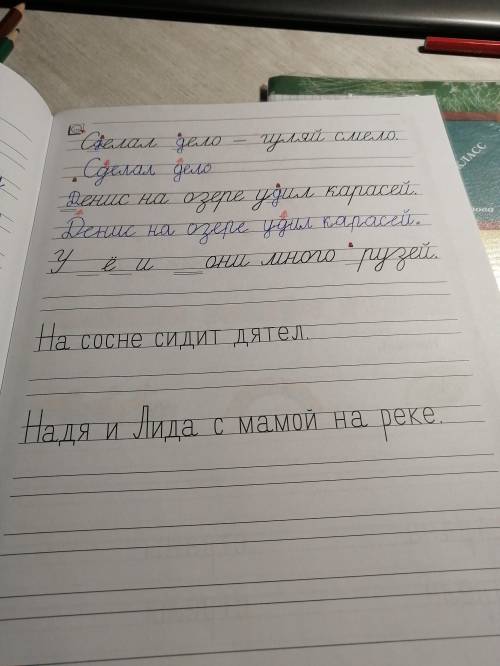 Сделал дело – гуляй смело.
Сделал дело
Денис на озере удил карасей.
Денис на озере удил карасей.
У __ё__и __они много _рузей.
На сосне сидит дятел.
Надя и Лида с мамой на реке.
КЛАСС